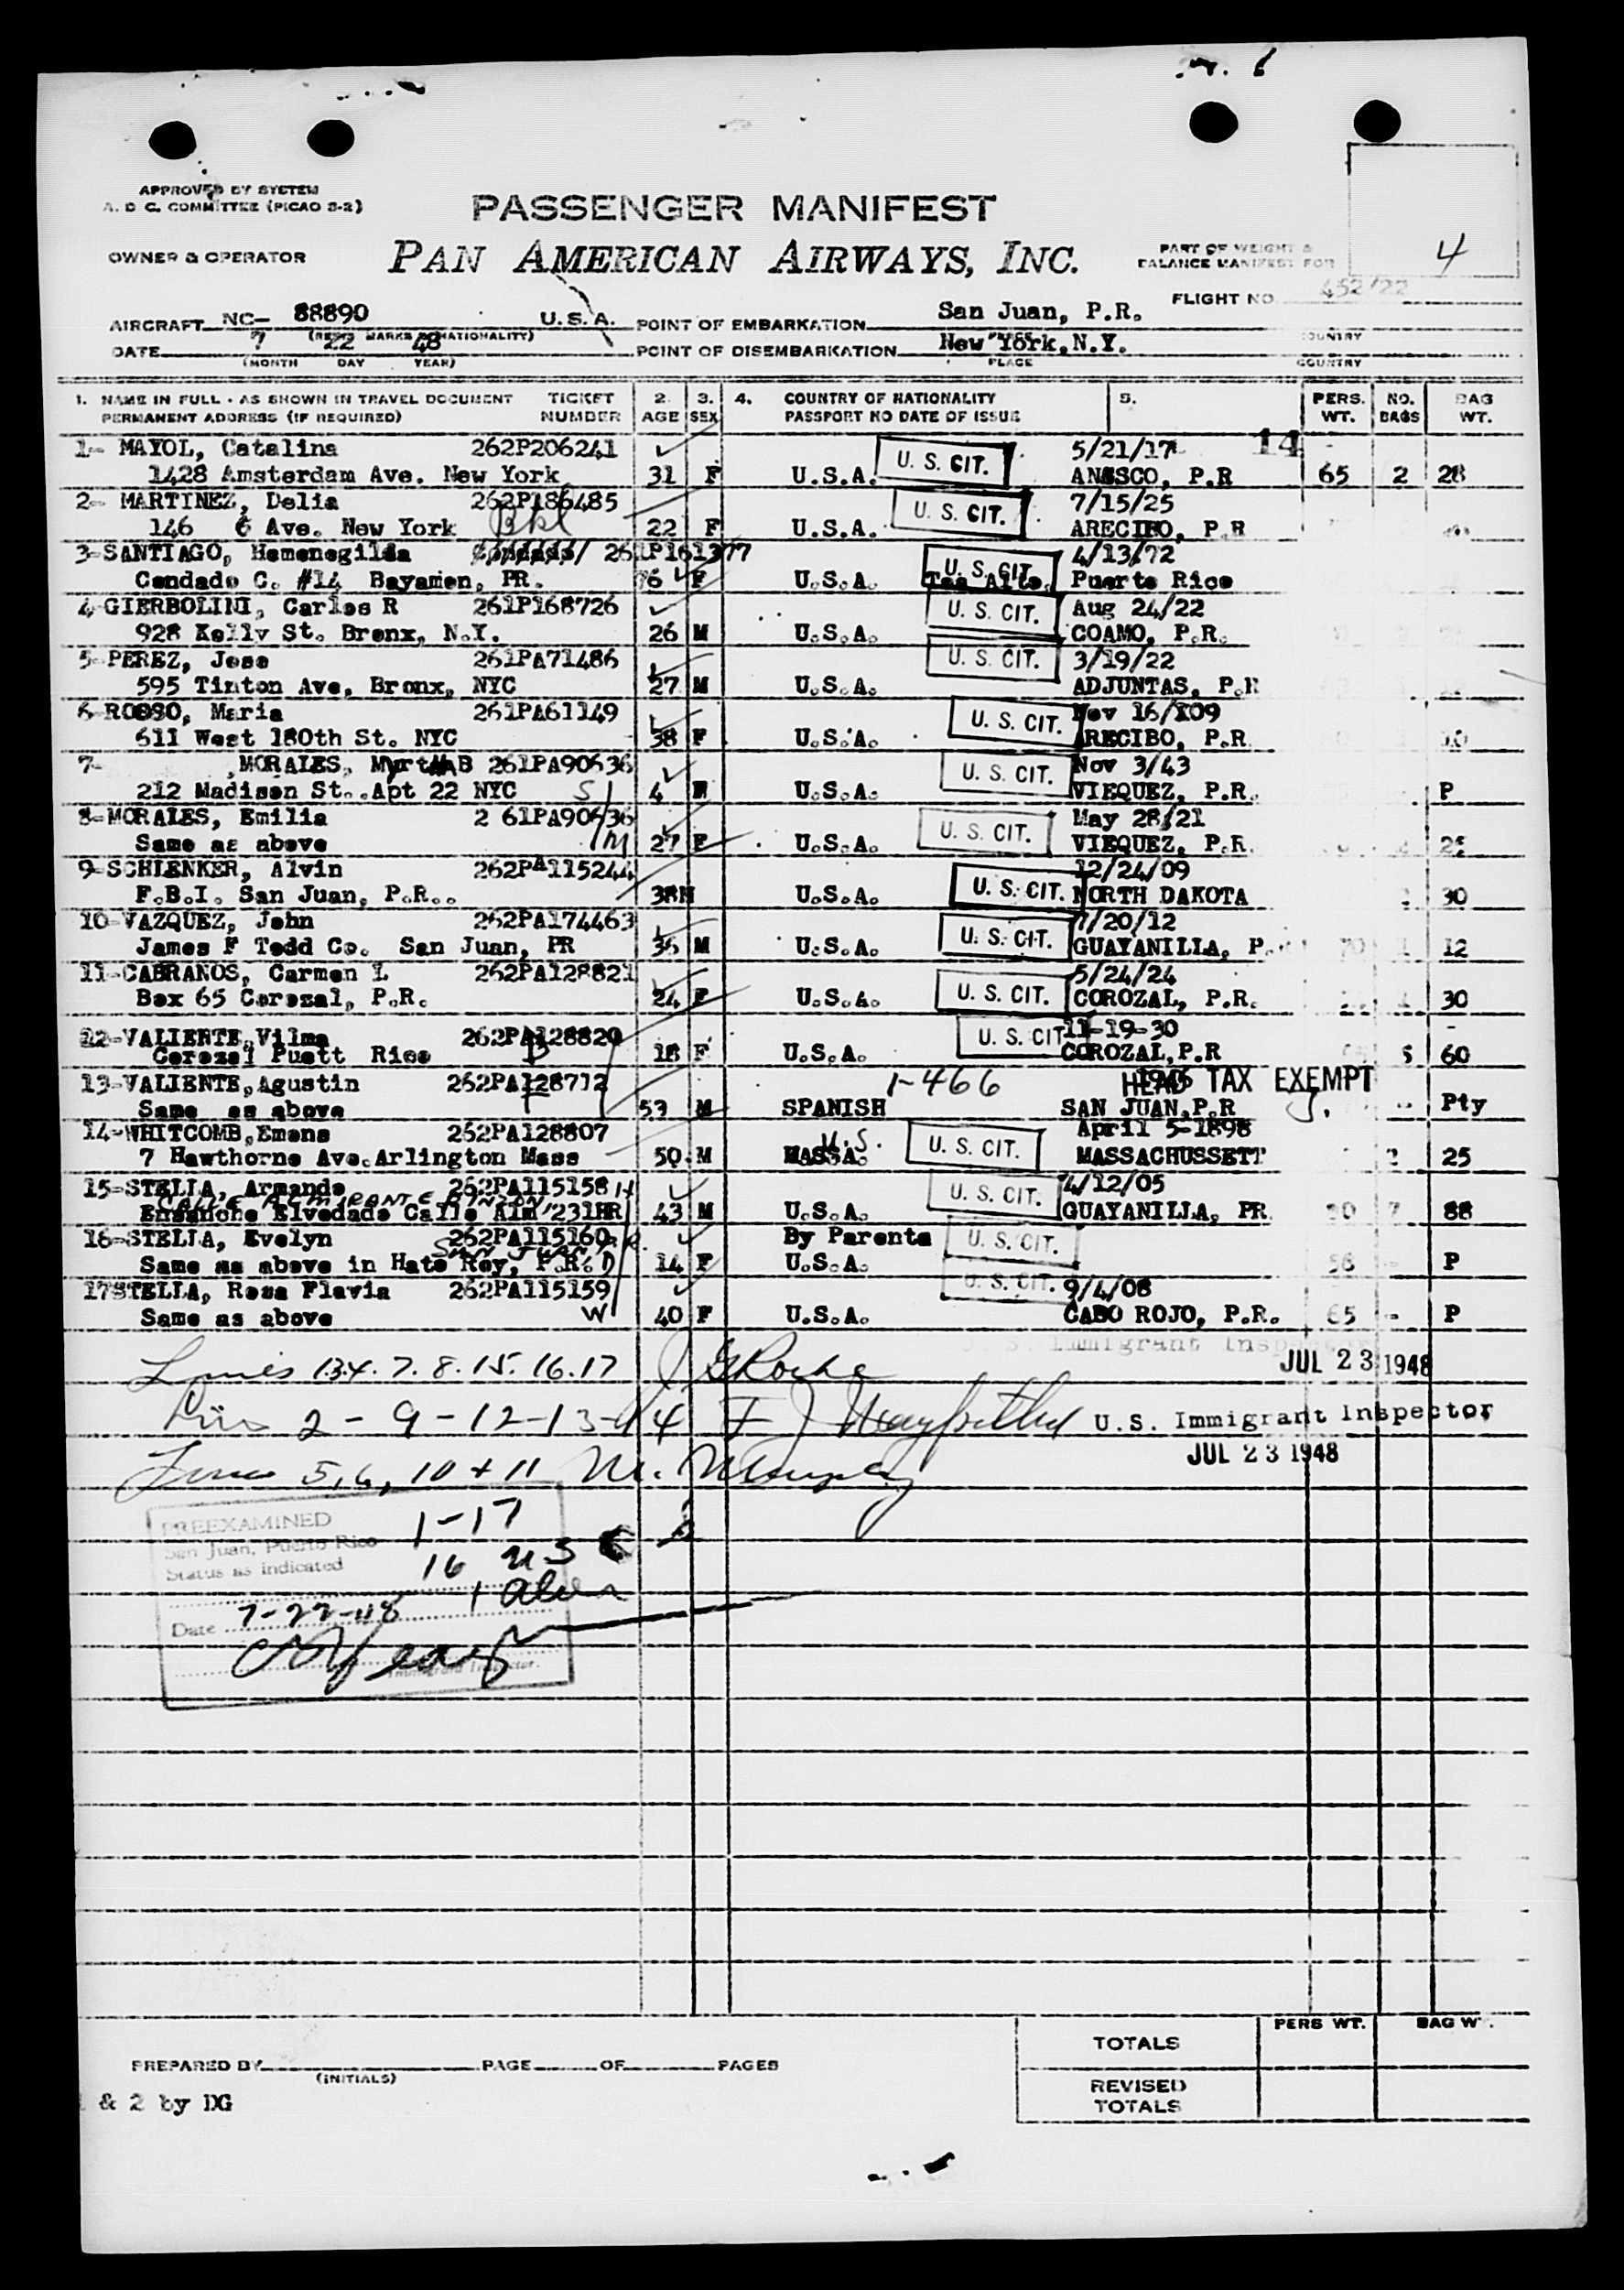 APPROVED BY SYSTEM
A. D C. COMMITTEE (PICAO S-2)
PASSENGER MANIFEST
4
OWNER & OPERATOR
PAN AMERICAN AIRWAYS, INC.
PART OF WEIGHT &
BALANCE MANIFEST FOR
FLIGHT NO 452/22
AIRCRAFT NC- 88890 U.S.A. POINT OF EMBARKATION San Juan, P.R.
DATE 7 22 48 POINT OF DISEMBARKATION New York, N.Y. COUNTRY
(MONTH DAY YEAR) PLACE COUNTRY
1. NAME IN FULL - AS SHOWN IN TRAVEL DOCUMENT TICKET 2. 3. 4. COUNTRY OF NATIONALITY 5. PERS. NO. BAG
PERMANENT ADDRESS (IF REQUIRED) NUMBER AGE SEX PASSPORT NO DATE OF ISSUE WT. BAGS WT.
1- MAYOL, Catalina 262P206241 U. S. CIT. 5/21/17 14
1428 Amsterdam Ave. New York 31 F U.S.A. ANASCO, P.R 65 2 28
2- MARTINEZ, Delia 262P186485 U. S. CIT. 7/15/25
146 6 Ave. New York Bkl 22 F U.S.A. ARECIBO, P.R
3-SANTIAGO, Hemenegilda 261P161377 U. S. CIT. 4/13/72
Condado C. #14 Bayamon, PR. 76 F U.S.A. Toa Alto, Puerto Rico
4-GIERBOLINI, Carlos R 261P168726 U. S. CIT. Aug 24/22
928 Kelly St. Bronx, N.Y. 26 M U.S.A. COAMO, P.R.
5-PEREZ, Jose 261PA71486 U. S. CIT. 3/19/22
595 Tinton Ave, Bronx, NYC 27 M U.S.A. ADJUNTAS, P.R
6-ROSSO, Maria 261PA61149 U. S. CIT. Nov 16/109
611 West 180th St. NYC 38 F U.S.A. ARECIBO, P.R.
7- ,MORALES, Myrtha B 261PA90636 U. S. CIT. Nov 3/43
212 Madison St..Apt 22 NYC S 4 U.S.A. VIEQUEZ, P.R. P
8-MORALES, Emilia 2 61PA90636 U. S. CIT. May 28/21
Same as above M 27 F U.S.A. VIEQUEZ, P.R.
9-SCHLENKER, Alvin 262PA115244 12/24/09
F.B.I. San Juan, P.R.. 38M U.S.A. U. S. CIT. NORTH DAKOTA 30
10-VAZQUEZ, John 262PA174463 7/20/12
James F Todd Co. San Juan, PR 36 M U.S.A. U. S. CIT. GUAYANILLA, P. 70 1 12
11-CABRANOS, Carmen L 262PA128821 5/24/24
Box 65 Corozal, P.R. 24 F U.S.A. U. S. CIT. COROZAL, P.R. 30
12-VALIENTE,Vilma 262PA128820 U. S. CIT 11-19-30
Corozal Puett Rico D 18 F U.S.A. COROZAL,P.R 5 60
13-VALIENTE,Agustin 262PA128712 1-466 HEAD TAX EXEMPT
Same as above F 53 M SPANISH SAN JUAN,P.R Pty
14-WHITCOMB,Emons 262PA128807 U.S. U. S. CIT. April 5-1898
7 Hawthorne Ave.Arlington Mass 50 M MASSACHUSSETT 2 25
15-STELLA, Armando 262PA115158 H U. S. CIT. 4/12/05
CALLE ALMIRANTE PINZON
Ensanche Elvedado Calle Alm 231HR 43 M U.S.A. GUAYANILLA, PR. 90 7 88
16-STELLA, Evelyn 262PA115160 By Parents U. S. CIT.
SAN JUAN P.R.
Same as above in Hato Rey, P.R. D 14 F U.S.A. P
17STELLA, Rosa Flavia 262PA115159 U. S. CIT. 9/4/08
Same as above W 40 F U.S.A. CABO ROJO, P.R. 65 - P
U. S. Immigrant Inspector
Lines 1.3.4. 7. 8. 15. 16. 17 JUL 23 1948
Lines 2 - 9 - 12 - 13 - 14 U.S. Immigrant Inspector
JUL 23 1948
Lines 5, 6, 10 + 11 M. Murphy
PREEXAMINED 1-17
San Juan, Puerto Rico
Status as indicated 16 USC
1 alien
Date 7-22-48
Immigrant Inspector.
PERS WT. BAG WT.
TOTALS
PREPARED BY PAGE OF PAGES
(INITIALS)
REVISED
TOTALS
& 2 by DG